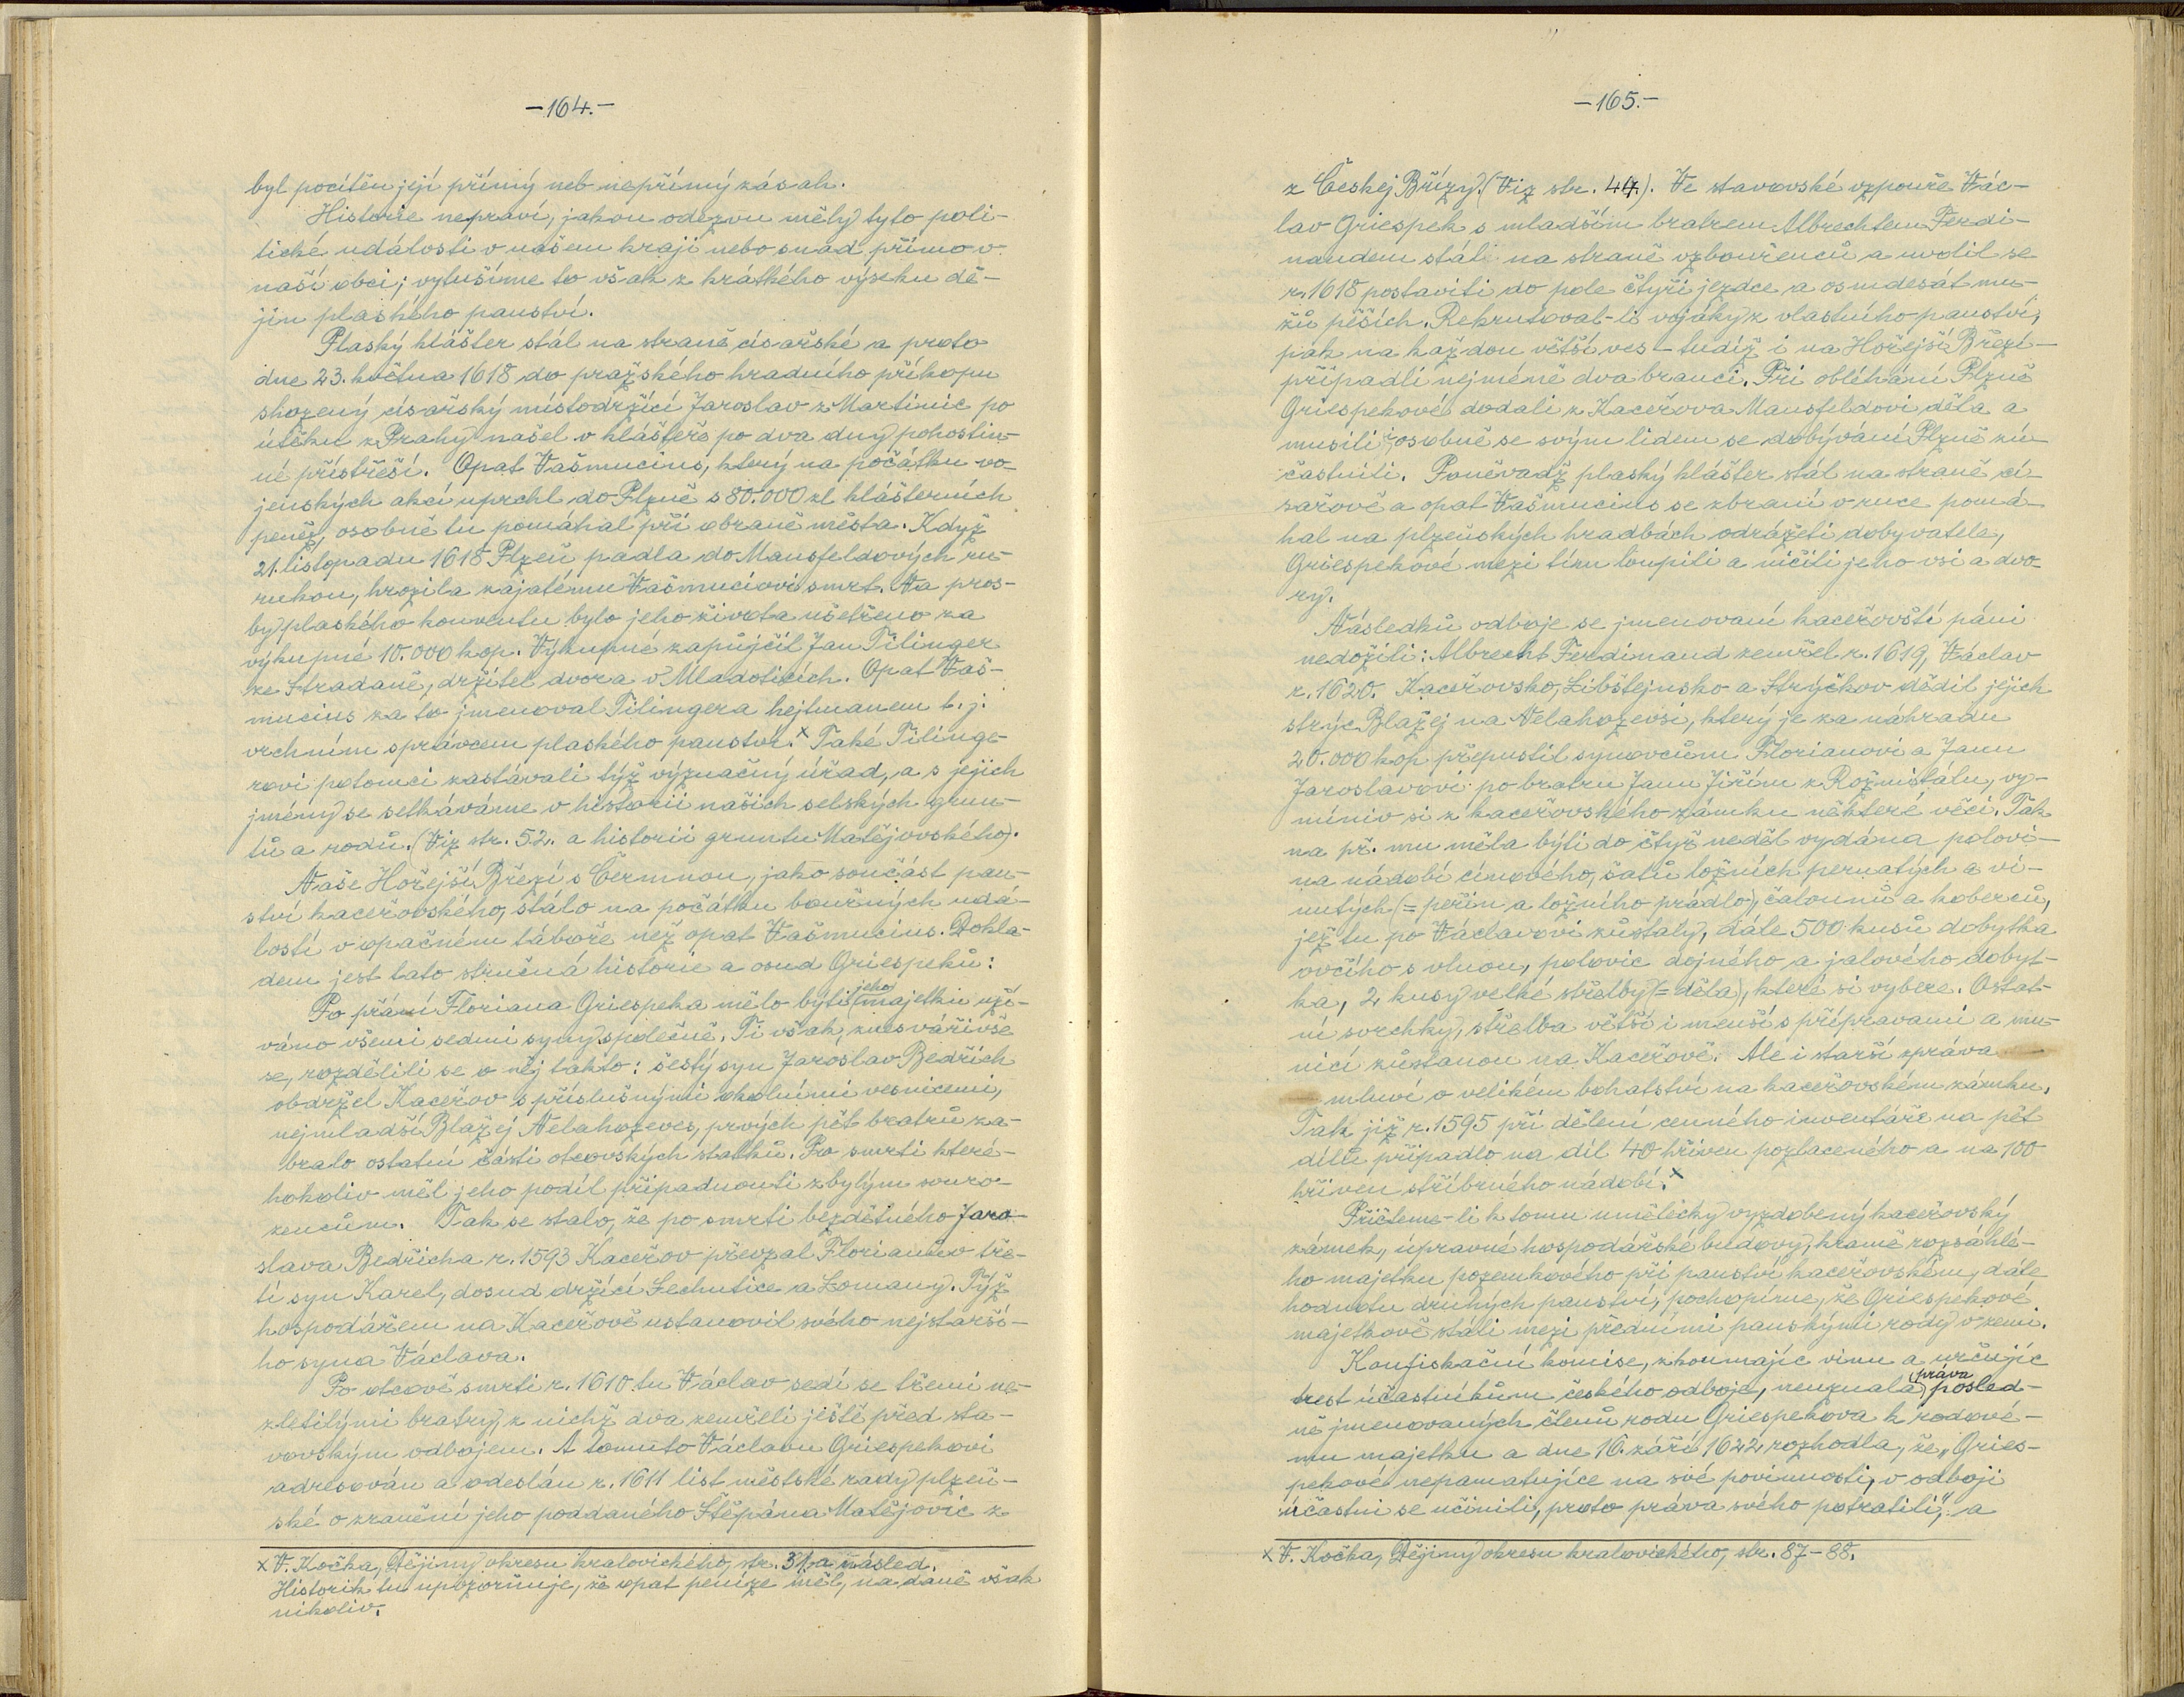 -164.-
byl pocítěn její přímý neb nepřímý zásah.
Historie nepraví, jakou odezvu měly tyto poli-
tické události v našem kraji nebo snad přímo v
naší obci; vytušíme to však z krátkého výseku dě-
jin plaského panství.
Plaský klášter stál na straně císařské a proto
dne 23. května 1618 do pražského hradního příkopu
shozený císařský místodržící Jaroslav z Martinic po
útěku z Prahy našel v klášteře po dva dny pohostin-
né přístřeší. Opat Vašmucius, který na počátku vo-
jenských akcí uprchl do Plzně s 80.000 zl klášterních
peněz, osobně tu pomáhal při obraně města. Když
21. listopadu 1618 Plzeň padla do Mansfeldových ru-
rukou, hrozila zajatému Vašmuciovi smrt. Na pros-
by plaského konventu bylo jeho života ušetřeno za
výkupné 10.000 kop. Výkupné zapůjčil Jan Tilinger
ze Stradaně, držitel dvora v Mladoticích. Opat Vaš-
mucius za to jmenoval Tilingera hejtmanem t. j.
vrchním správcem plaského panství.x Také Tilinge-
rovi potomci zastávali týž význačný úřad, a s jejich
jmény se setkáváme v historii našich selských grun-
tů a rodů. (Viz str. 52. a historii gruntu Matějovského).
Naše Hořejší Březí s Čermnou, jako součást pan-
ství kaceřovského, stálo na počátku bouřných udá-
lostí v opačném táboře než opat Vašmucius. Dokla-
dem jest tato stručná historie a osud Griespeků:
Po přání Floriana Griespeka mělo býti (jeho) majetku uží-
váno všemi sedmi syny společně. Ti však, znesvářivše
se, rozdělili se o něj takto: šestý syn Jaroslav Bedřich
obdržel Kaceřov s příslušnými okolními vesnicemi,
nejmladší Blažej Nelahozeves, prvých pět bratrů za-
bralo ostatní části otcovských statků. Po smrti které-
hokoliv měl jeho podíl připadnouti zbylým souro-
zencům. Tak se stalo, že po smrti bezdětného Jaro-
slava Bedřicha r. 1593 Kaceřov převzal Florianův tře-
tí syn Karel, dosud držící Lechutice a Lomany. Týž
hospodářem na Kaceřově ustanovil svého nejstarší-
ho syna Václava.
Po otcově smrti r. 1610 tu Václav sedí se třemi ne-
zletilými bratry, z nichž dva zemřeli ještě před sta-
vovským odbojem. A tomuto Václavu Griespekovi
adresován a odeslán r. 1611 list městské rady plzeň-
ské o zranění jeho poddaného Štěpána Matějovic z
x V. Kočka, Dějiny okresu kralovického, str. 31. a násled.
Historik tu upozorňuje, že opat peníze měl, na daně však
nikoliv.
-165.-
z Českej Břízy. (Viz str. 44.). Ve stavovské vzpouře Vác-
lav Griespek s mladším bratrem Albrechtem Ferdi-
nandem stáli na straně vzbouřenců a uvolil se
r. 1618 postaviti do pole čtyři jezdce a osmdesát mu-
žů pěších. Rekrutoval-li vojáky z vlastního panství,
pak na každou větší ves - tudíž i na Hořejší Březí -
připadli nejméně dva branci. Při obléhání Plzně
Griespekové dodali z Kaceřova Mansfeldovi děla a
musili i osobně se svým lidem se dobývání Plzně zú-
častniti. Poněvadž plaský klášter stál na straně cí-
sařově a opat Vašmucius se zbraní v ruce pomá-
hal na plzeňských hradbách odrážeti dobyvatele,
Griespekové mezi tím loupili a ničili jeho vsi a dvo-
ry.
Následků odboje se jmenovaní kaceřovští páni
nedožili: Albrecht Ferdinand zemřel r. 1619, Václav
r. 1620. Kaceřovsko, Libštejnsko a Strýčkov dědil jejich
strýc Blažej na Nelahozevsi, který je za náhradu
20.000 kop přepustil synovcům Florianovi a Janu
Jaroslavovi po bratru Janu Jiřím z Rožmitálu, vy-
míniv si z kaceřovského zámku některé věci. Tak
na př. mu měla býti do čtyř neděl vydána polovi-
na nádobí cínového, šatů ložních pernatých a vi-
nutých (= peřin a ložního prádla), čalounů a koberců,
jež tu po Václavovi zůstaly, dále 500 kusů dobytka
ovčího s vlnou, polovic dojného a jalového dobyt-
ka, 2 kusy velké střelby (= děla), které si vybere. Ostat-
ní svrchky, střelba větší i menší s přípravami a mu-
nicí zůstanou na Kaceřově. Ale i starší zpráva
mluví o velikém bohatství na kaceřovském zámku.
Tak již r. 1595 při dělení cenného inventáře na pět
dílů připadlo na díl 40 hřiven pozlaceného a na 100
hřiven stříbrného nádobí.x
Přičteme-li k tomu umělecky vyzdobený kaceřovský
zámek, úpravné hospodářské budovy, kromě rozsáhlé-
ho majetku pozemkového při panství kaceřovském, dále
hodnotu druhých panství, pochopíme, že Griespekové
majetkově stáli mezi předními panskými rody v zemi.
Konfiskační komise, zkoumajíc vinu a určujíc
trest účastníkům českého odboje, neuznala (práva) posled-
ně jmenovaných členů rodu Griespekova k rodové-
mu majetku a dne 16. září 1622 rozhodla, že „Gries-
pekové nepamatujíce na své povinnosti, v odboji
účastni se učinili, proto práva svého potratili", a
x V. Kočka, Dějiny okresu kralovického, str. 87-88.